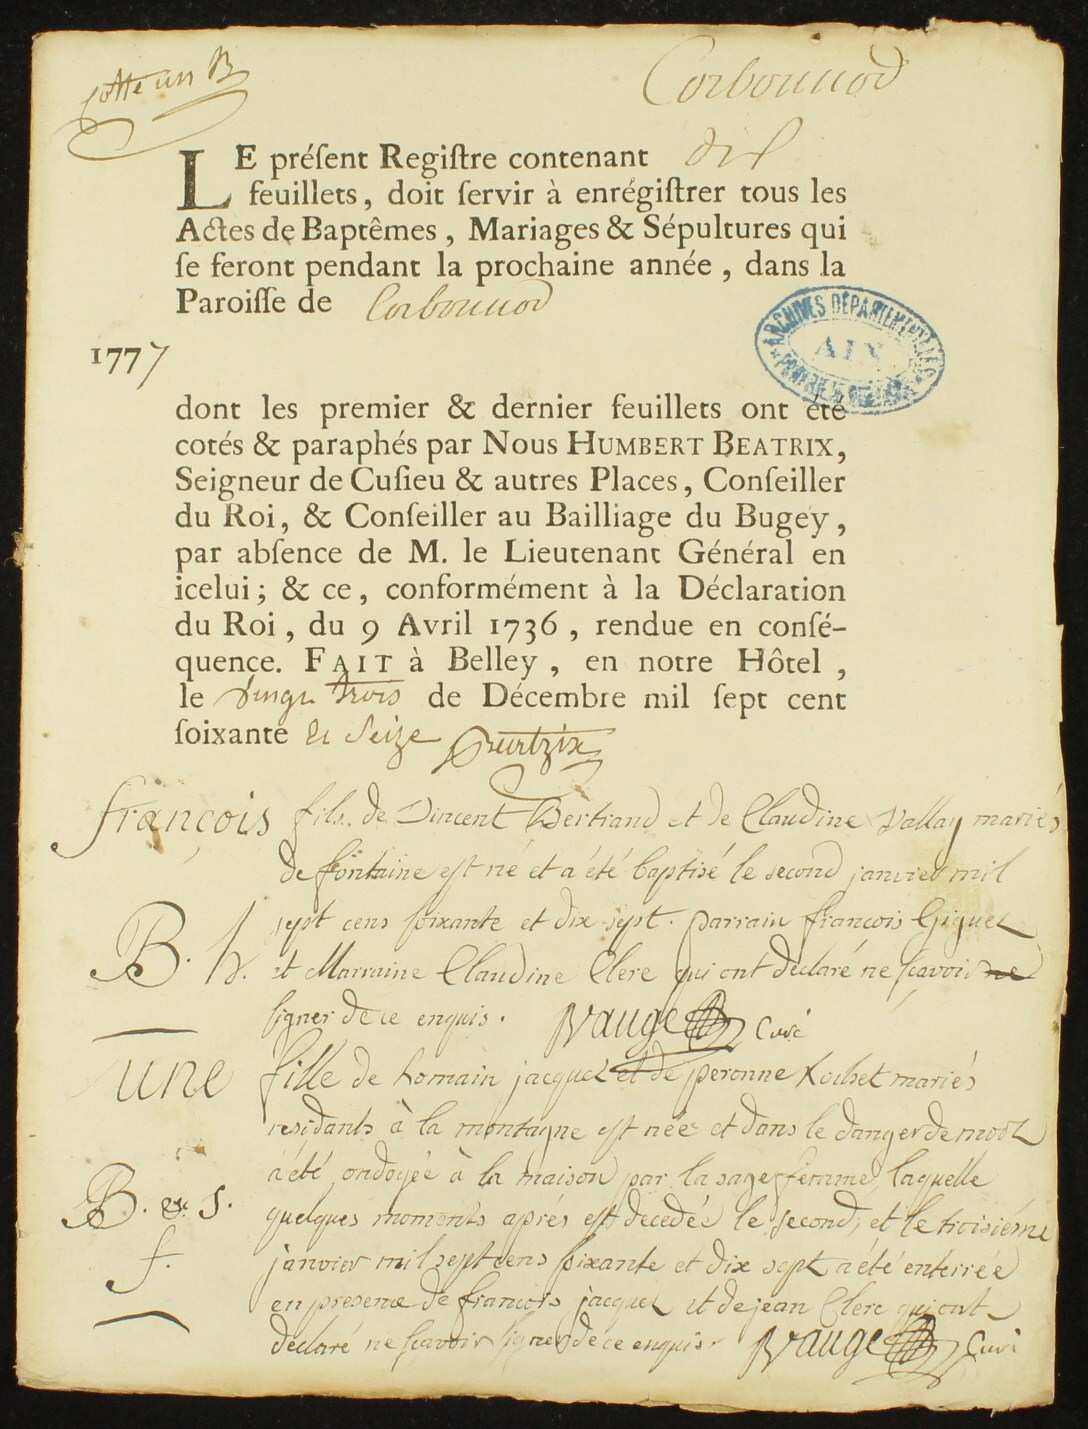 Cotte un B
Corbonnod
LE préſent Regiſtre contenant dix
feuillets, doit ſervir à enrégiſtrer tous les
Actes de Baptêmes, Mariages & Sépultures qui
ſe feront pendant la prochaine année, dans la
Paroiſſe de Corbonnod
ARCHIVES DÉPARTEMENTALES
AIN
1777
dont les premier & dernier feuillets ont été
cotés & paraphés par Nous HUMBERT BEATRIX,
Seigneur de Cuſieu & autres Places, Conſeiller
du Roi, & Conſeiller au Bailliage du Bugey,
par abſence de M. le Lieutenant Général en
icelui; & ce, conformément à la Déclaration
du Roi, du 9 Avril 1736, rendue en conſé-
quence. FAIT à Belley, en notre Hôtel,
le vingt trois de Décembre mil ſept cent
ſoixante et Seize
françois fils de Vincent Bertrand et de Claudine Vallay mariés
de fontaine est né et a été baptisé le second janvier mil
sept cens soixante et dix-sept. parrain françois Giguet
B. h. et Marraine Claudine Clerc qui ont declaré ne sçavoir ne
signer de ce enquis. Vauge Curé
une fille de Romain jacquet et de peronne Rochet mariés
residants à la montagne est née et dans le danger de mort
a été ondoyée à la maison par la sage femme, laquelle
B. et S. quelques moments aprés est decedée le second, et le troisiéme
f. janvier mil sept cens soixante et dix sept a été enterrée
en presence de francois jacquet et de jean Clerc qui ont
declaré ne sçavoir signer de ce enquis. Vauge Curé